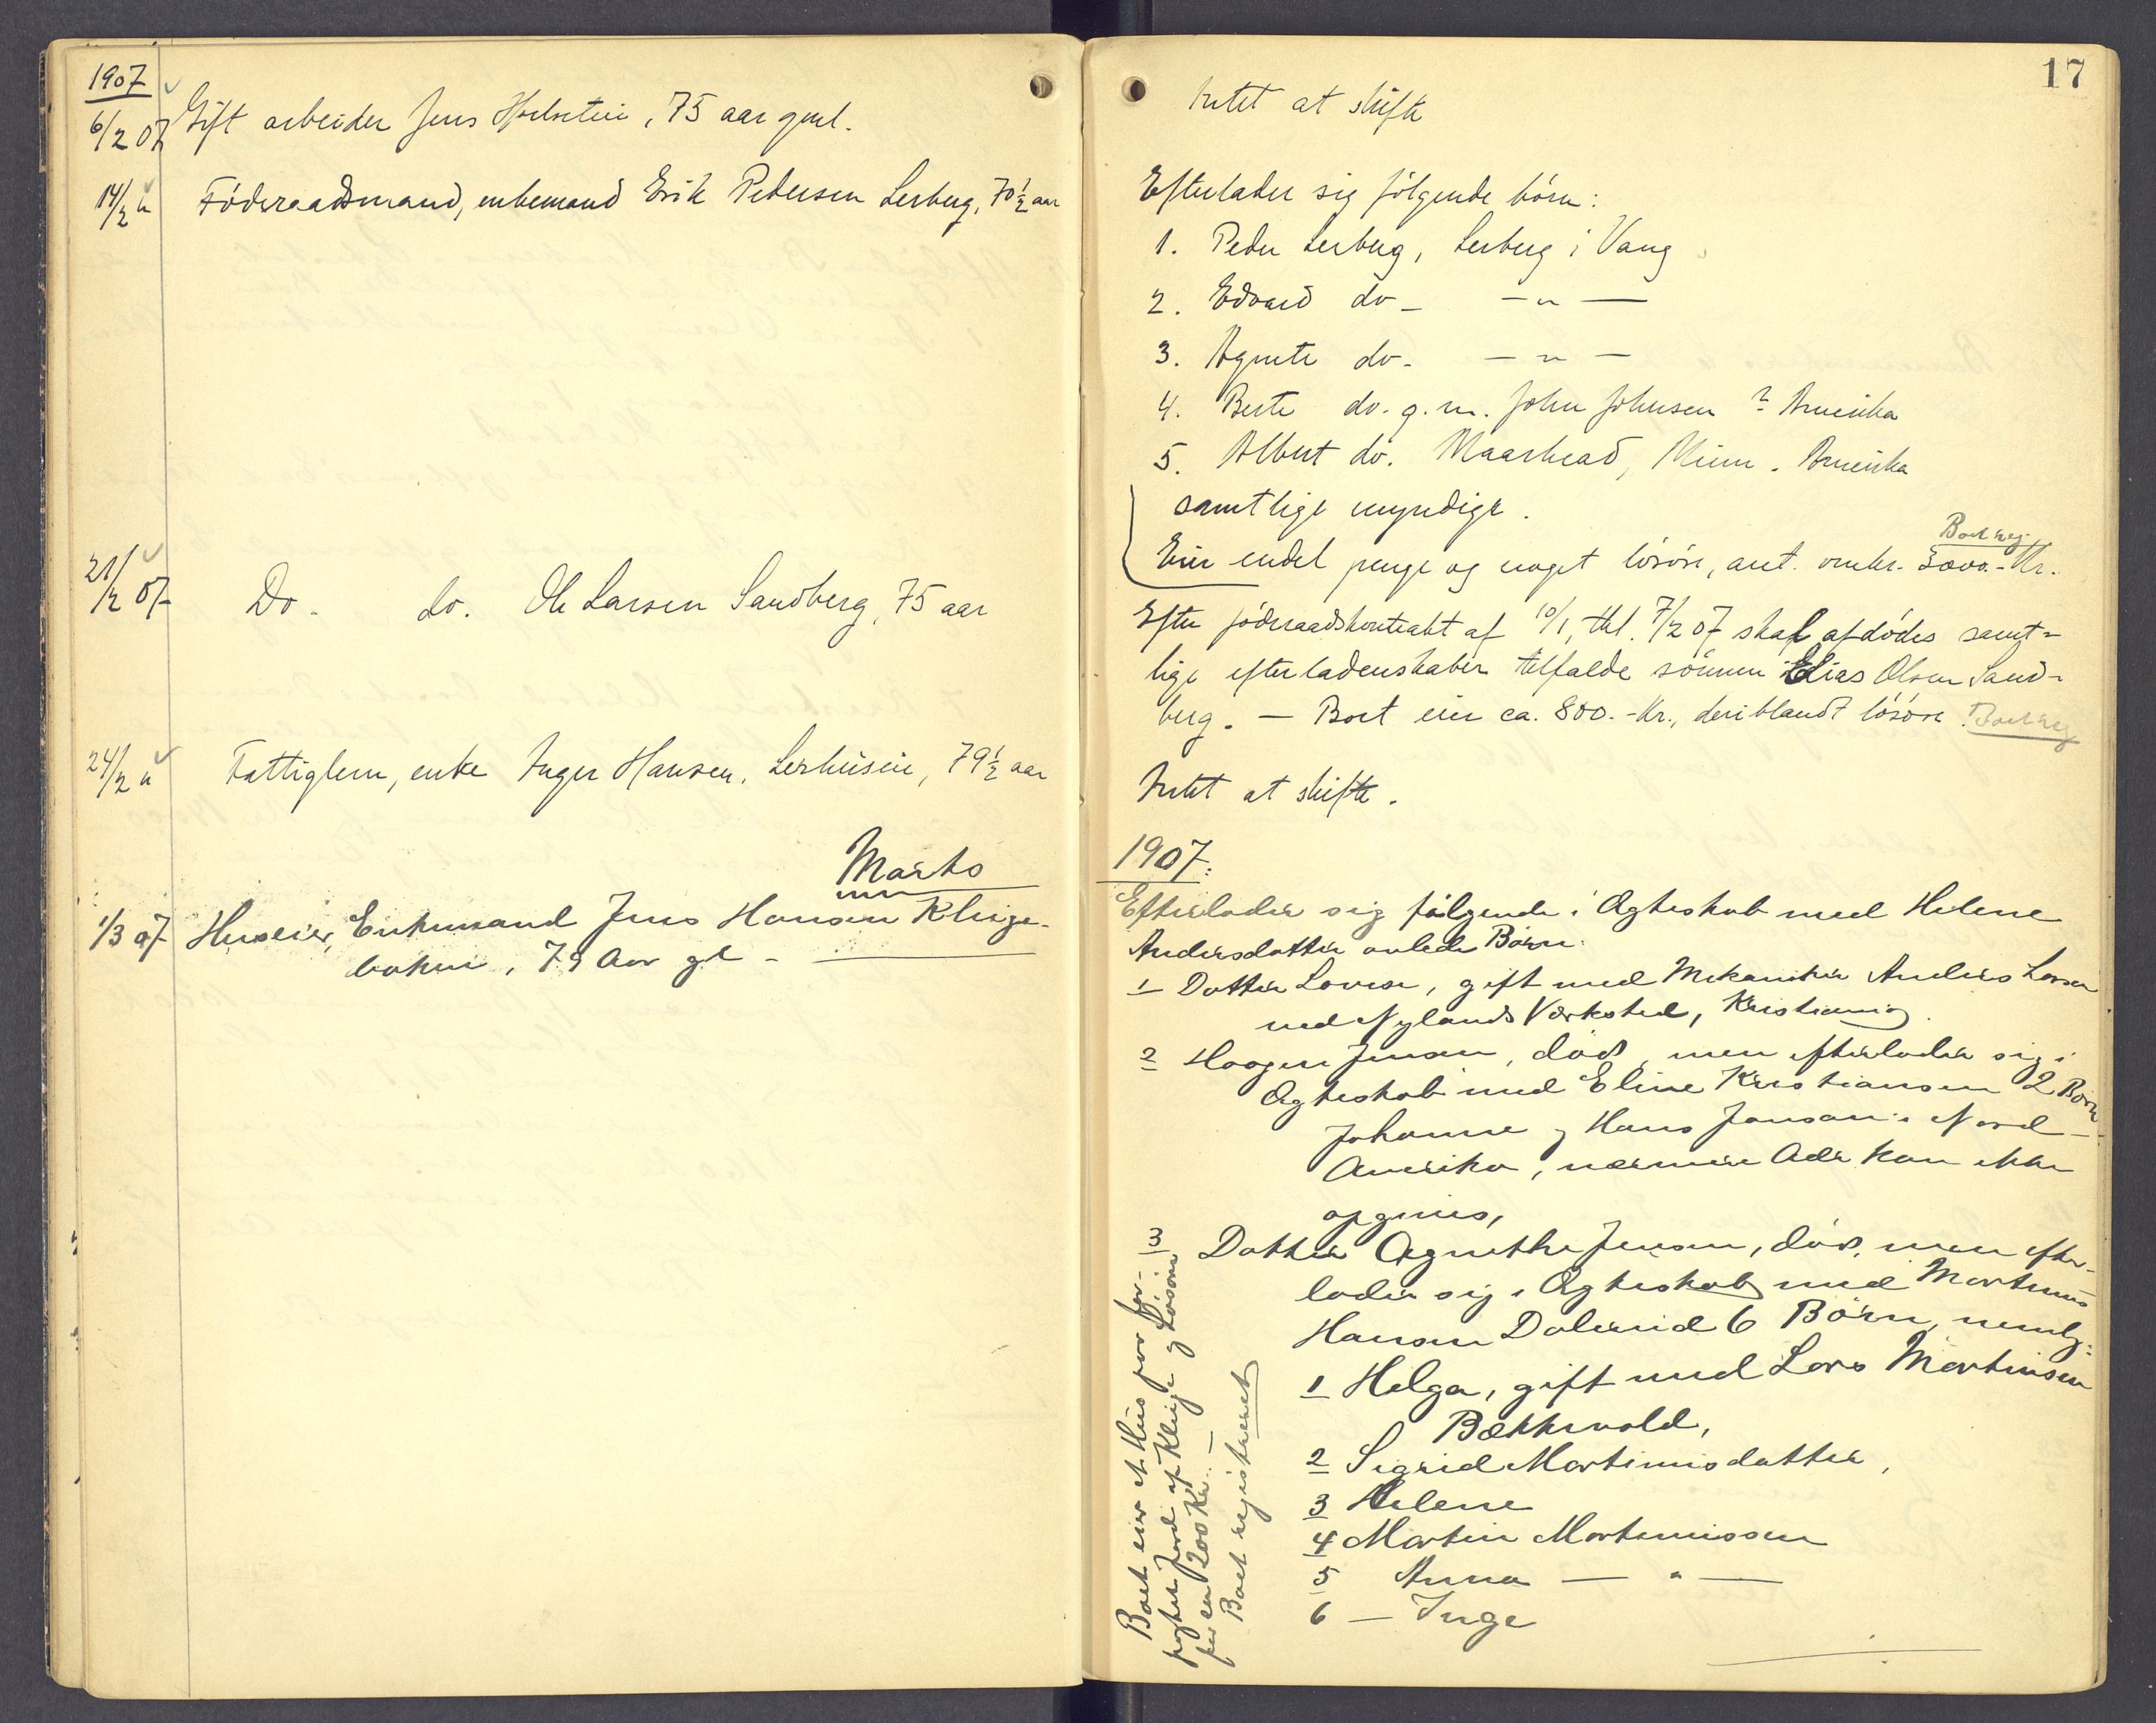 1907
6/2 07 Gift arbeider Jens Holsetein, 75 aar gml.
14/2 " Föderaadsmand, enkemand Erik Pedersen Lerberg, 70 1/2 aar
21/2 07 Do. do. Ole Larsen Sandberg, 75 aar
24/2 " Fattiglem, enke Inger Hansen, Lerhusein, 79 1/2 aar
Marts
1/3 07 Huseier, Enkemand Jens Hansen Klinge-
baken, 79 Aar gl -
17
Intet at skifte
Efterlader sig fölgende börn:
1. Peder Lerberg, Lerberg i Vang
2. Edvard do - — " —
3. Agnete do. — " —
4. Berte do. g. m. John Johnsen ? Amerika
5. Albert do. Maarhead, Minn. Amerika
samtlige myndige.
Boet reg.
Eier endel penge og noget lösöre, ant. omkr. 3000.- Kr.
Efter föderaadskontrakt af 10/1, thl. 7/2 07 skal afdödes samt-
lige efterladenskaber tilfalde sönnen Elias Olsen Sand-
berg. — Boet eier ca. 800.- Kr., deriblandt lösöre. Boet reg
Intet at skifte.
1907:
Efterlader sig følgende i Ægteskab med Helene
Andersdatter avlede Børn:
1 Datter Lovise, gift med Mekaniker Anders Larsen
ved Nylands Værksted, Kristiania.
2 Haagen Jensen, død, men efterlader sig i
Ægteskab med Eline Kristiansen 2 Børn
Johanne og Hans Jensen i Nord-
Amerika, nærmere Adr. kan ikke
opgives,
3 Datter Agnethe Jensen, død, men efter-
lader sig i Ægteskab med Martinus
Hansen Dalseid 6 Børn, nemlig:
1 Helga, gift med Lars Martinsen
Bækkevold,
2 Sigrid Martinusdatter,
3 Helene
4 Martin Martinussen
5 Anna — " —
6 — Inge
Boet eier et Hus paa for-
pagtet Jord af Klinge og Løsøre
for ca 200 Kr. —
Boet registreret